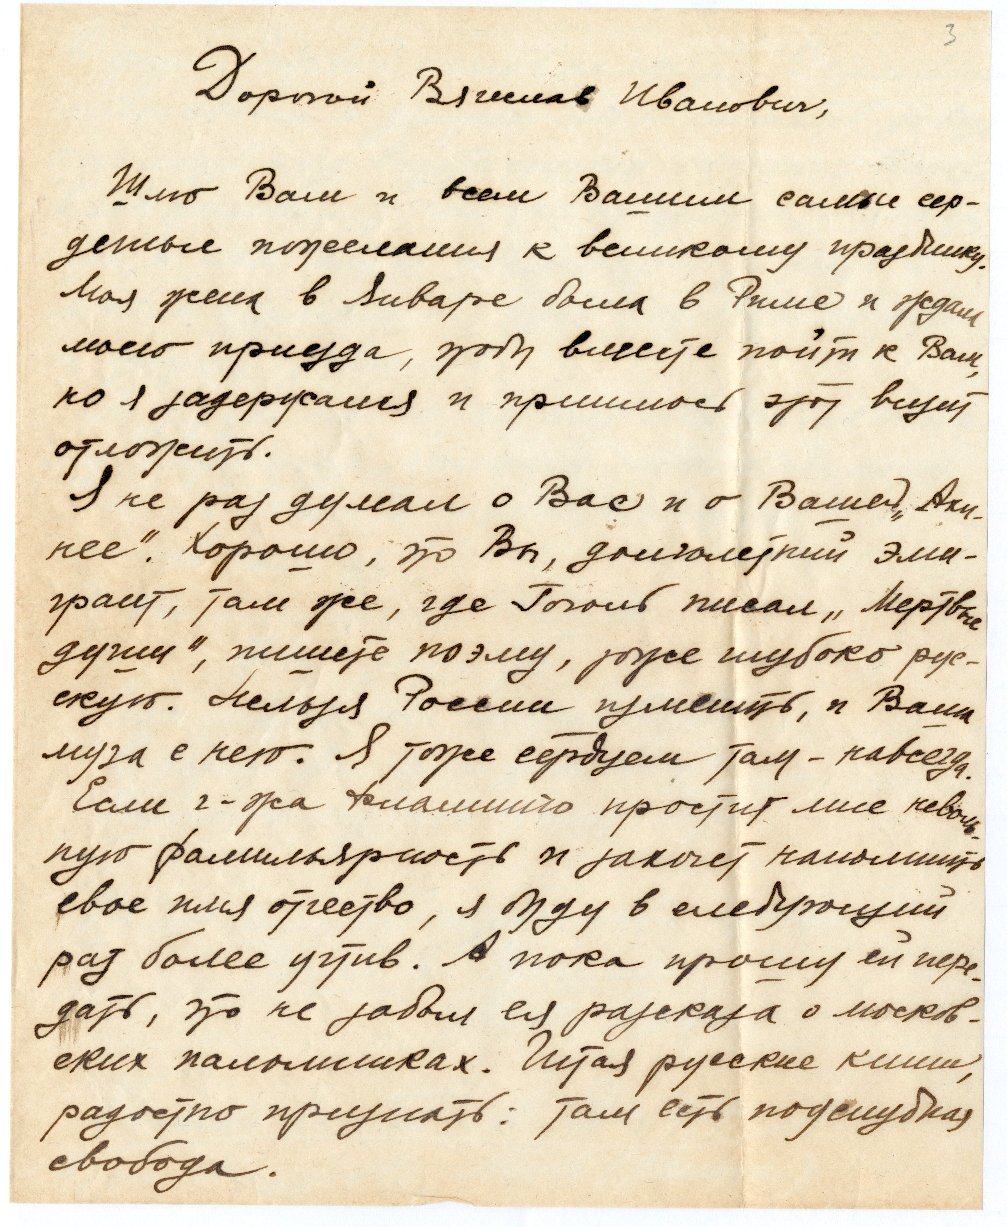 3
Дорогой Вячеслав Иванович,
Шлю Вам и всем Вашим самые сер-
дечные пожелания к великому празднику.
Моя жена в Январе была в Риме и ждала
моего приезда, чтобы вместе пойти к Вам,
но я задержался и пришлось этот визит
отложить.
Я не раз думал о Вас и о Вашей „Аки-
нее“. Хорошо, что Вы, долголетний эми-
грант, там же, где Гоголь писал „Мертвые
души“, пишете поэму, тоже глубоко рус-
скую. Нельзя России изменить, и Ваша
муза с нею. Я тоже сердцем там – навсегда.
Если г-жа простит мне неволь-
ную фамильярность и захочет напомнить
свое имя отчество, я буду в следующий
раз более учтив. А пока прошу ей пере-
дать, что не забыл ея рассказа о москов-
ских паломниках. Читая русские книги,
радостно признать: там есть подспудная
свобода.